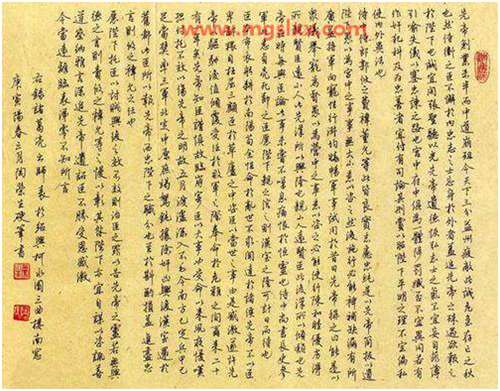 www.mgslxx.com
先帝創業未半而中道崩殂今天下三分益州疲敝此誠危急存亡之秋
也然侍衛之臣不懈於內忠志之士忘身於外者蓋追先帝之殊遇欲報之
於陛下也誠宜開張聖聽以光先帝遺德恢弘志士之氣不宜妄自菲薄
引喻失義以塞忠諫之路也宮中府中俱為一體陟罰臧否不宜異同若有
作奸犯科及為忠善者宜付有司論其刑賞以昭陛下平明之理不宜偏私
使內外異法也
侍中侍郎郭攸之費禕董允等此皆良實志慮忠純是以先帝簡拔以遺
陛下愚以為宮中之事事無大小悉以咨之然後施行必能裨補闕漏有所
廣益將軍向寵性行淑均曉暢軍事試用於昔日先帝稱之曰能是以
眾議舉寵為督愚以為營中之事悉以咨之必能使行陣和睦優劣得
所親賢臣遠小人此先漢所以興隆也親小人遠賢臣此後漢所以傾頹也先
帝在時每與臣論此事未嘗不歎息痛恨於桓靈也侍中尚書長史參
軍此悉貞良死節之臣願陛下親之信之則漢室之隆可計日而待也
臣本布衣躬耕於南陽苟全性命於亂世不求聞達於諸侯先帝不以臣
卑鄙猥自枉屈三顧臣於草廬之中咨臣以當世之事由是感激遂許先
帝以驅馳後值傾覆受任於敗軍之際奉命於危難之間爾來二十
有一年矣先帝知臣謹慎故臨崩寄臣以大事也受命以來夙夜憂嘆
恐托付不效以傷先帝之明故五月渡瀘深入不毛今南方已定兵甲已
足當獎率三軍北定中原庶竭駑鈍攘除奸凶興復漢室還於
舊都此臣所以報先帝而忠陛下之職分也至於斟酌損益進盡忠
言則攸之禕允之任也
願陛下托臣以討賊興復之效不效則治臣之罪以告先帝之靈若無興
德之言則責攸之禕允等之慢以彰其咎陛下亦宜自謀以咨諏善
道察納雅言深追先帝遺詔臣不勝受恩感激
今當遠離臨表涕零不知所言
右錄諸葛亮出師表於紹興柯水園三曲樓南窗
庚寅陽春三月陶榮硬筆書